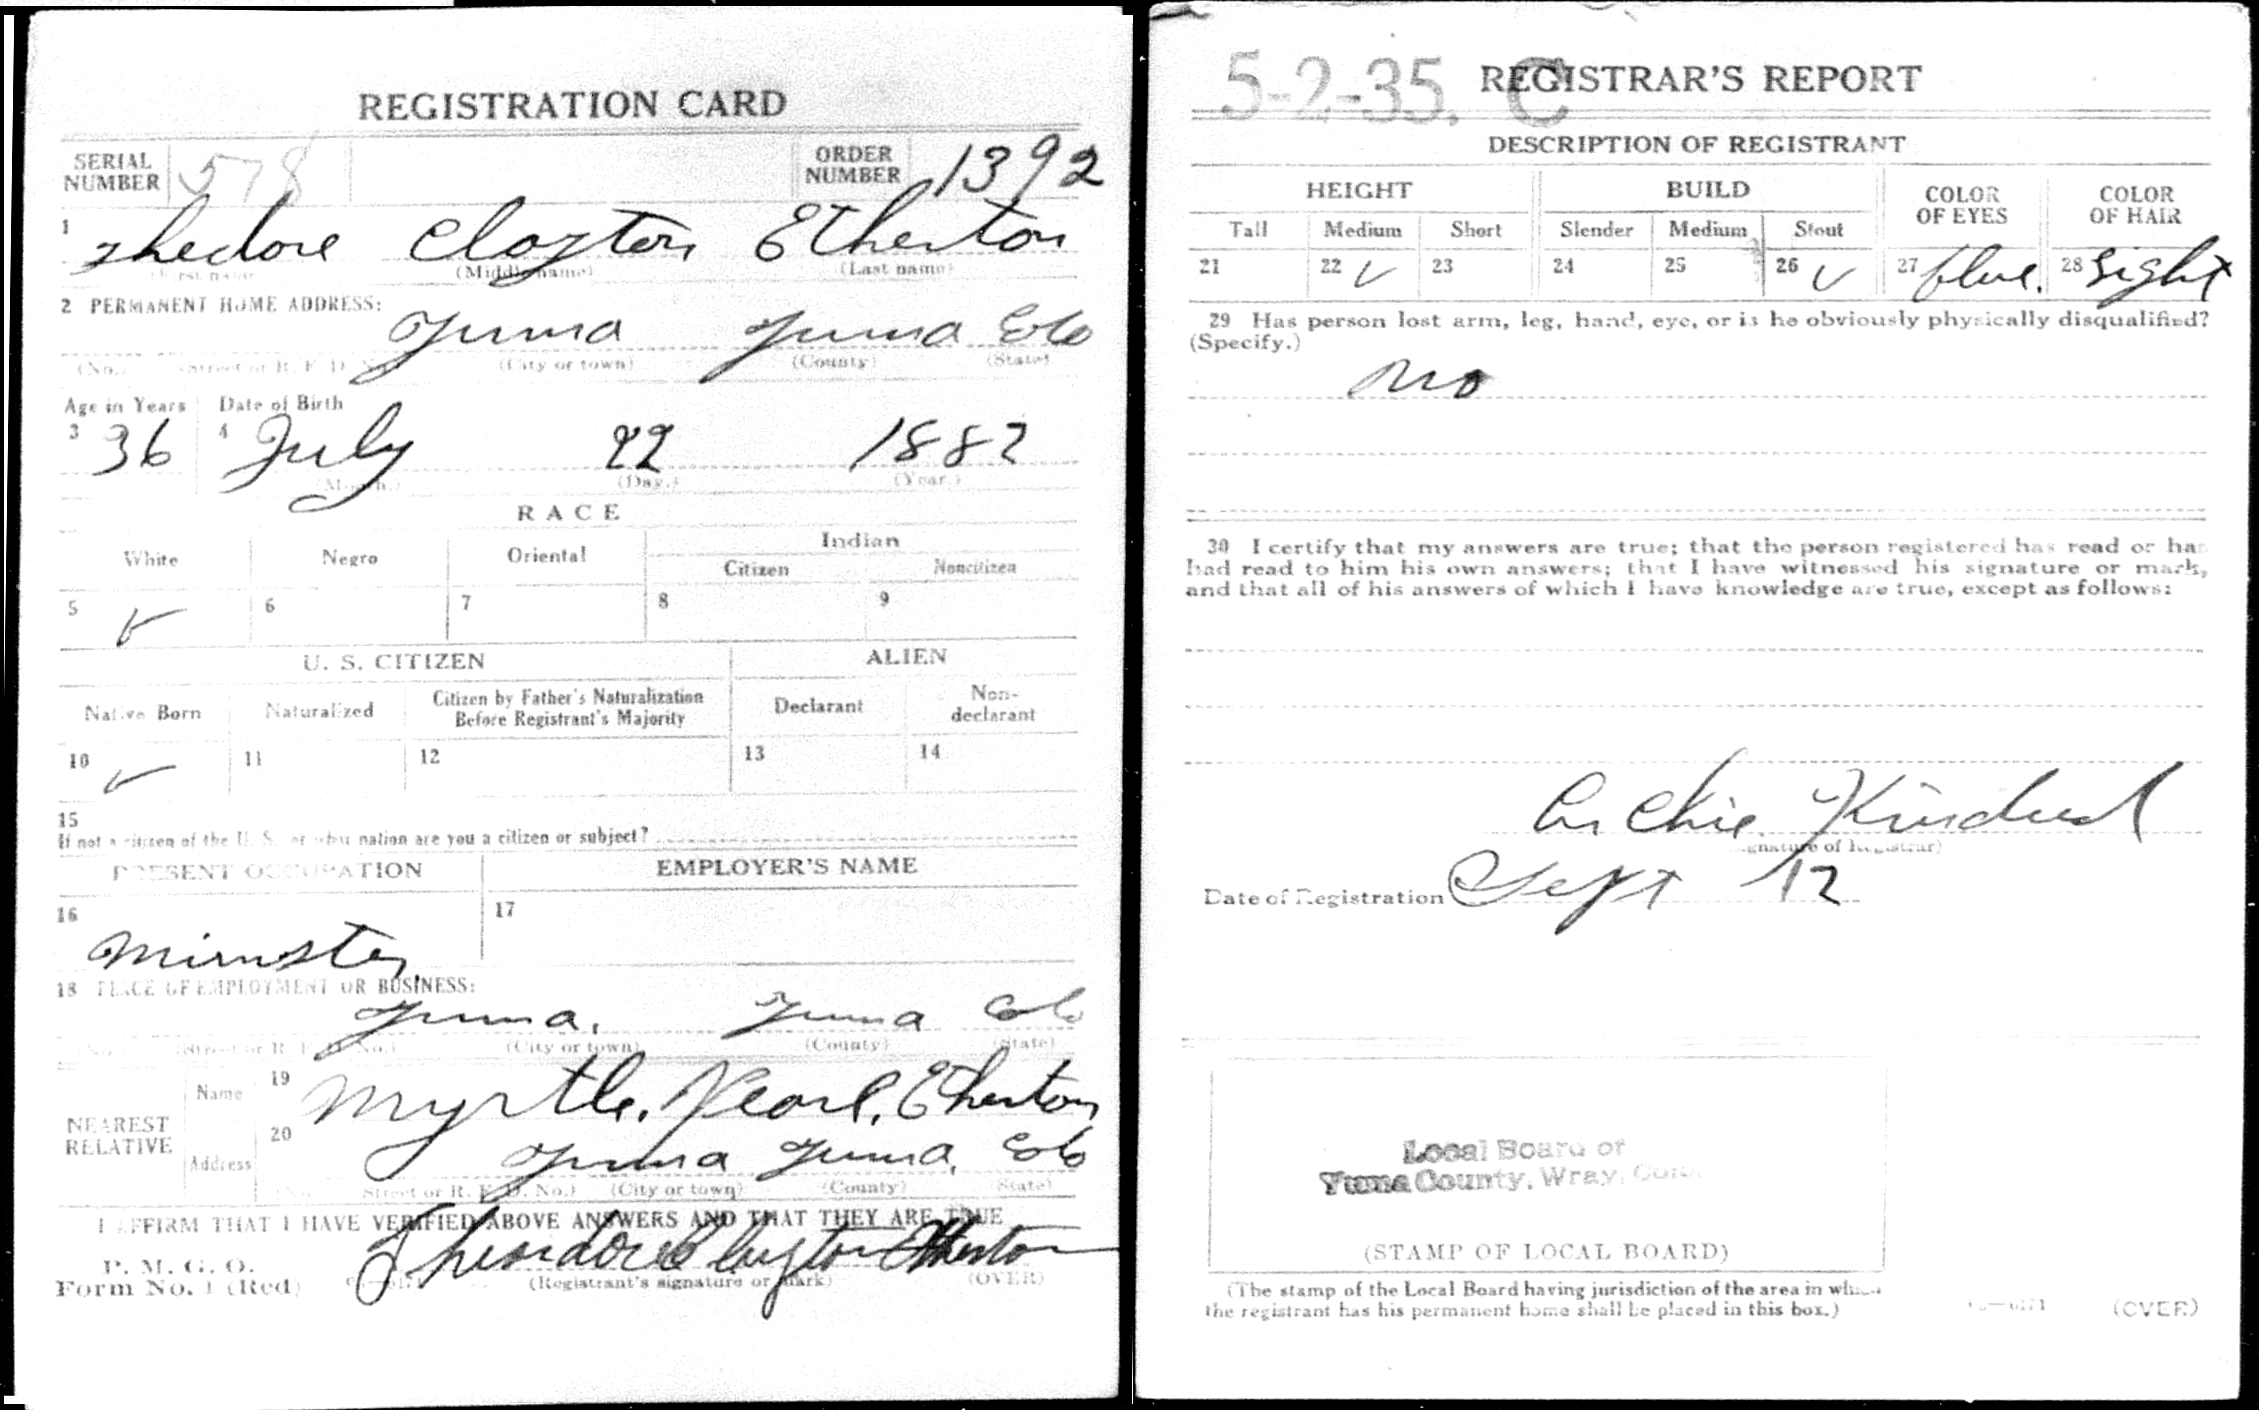 REGISTRATION CARD
SERIAL NUMBER 578 ORDER NUMBER 1392
1 Thedore Clayton Etherton
(First name) (Middle name) (Last name)
2 PERMANENT HOME ADDRESS:
Yuma Yuma Colo
(No.) (Street or R. F. D. No.) (City or town) (County) (State)
Age in Years Date of Birth
3 36 4 July 22 1882
(Month.) (Day.) (Year.)
RACE
White Negro Oriental Indian
Citizen Noncitizen
5 ✓ 6 7 8 9
U. S. CITIZEN ALIEN
Native Born Naturalized Citizen by Father's Naturalization Before Registrant's Majority Declarant Non-declarant
10 ✓ 11 12 13 14
15
If not a citizen of the U. S. of what nation are you a citizen or subject?
PRESENT OCCUPATION EMPLOYER'S NAME
16 Minister 17
18 PLACE OF EMPLOYMENT OR BUSINESS:
Yuma, Yuma Colo
(No.) (Street or R. F. D. No.) (City or town) (County) (State)
NEAREST RELATIVE Name 19 Myrtle Pearl Etherton
Address 20 Yuma Yuma, Colo
(No.) (Street or R. F. D. No.) (City or town) (County) (State)
I AFFIRM THAT I HAVE VERIFIED ABOVE ANSWERS AND THAT THEY ARE TRUE
P. M. G. O.
Form No. 1 (Red) Theodore Clayton Etherton
(Registrant's signature or mark) (OVER)
5-2-35. C REGISTRAR'S REPORT
DESCRIPTION OF REGISTRANT
HEIGHT BUILD COLOR OF EYES COLOR OF HAIR
Tall Medium Short Slender Medium Stout
21 22 ✓ 23 24 25 26 ✓ 27 blue. 28 Light
29 Has person lost arm, leg, hand, eye, or is he obviously physically disqualified?
(Specify.)
No
30 I certify that my answers are true; that the person registered has read or has
had read to him his own answers; that I have witnessed his signature or mark,
and that all of his answers of which I have knowledge are true, except as follows:
Archie Kindred
(Signature of Registrar)
Date of Registration Sept 12
Local Board of
Yuma County, Wray, Colo.
(STAMP OF LOCAL BOARD)
(The stamp of the Local Board having jurisdiction of the area in which
the registrant has his permanent home shall be placed in this box.)
(OVER)